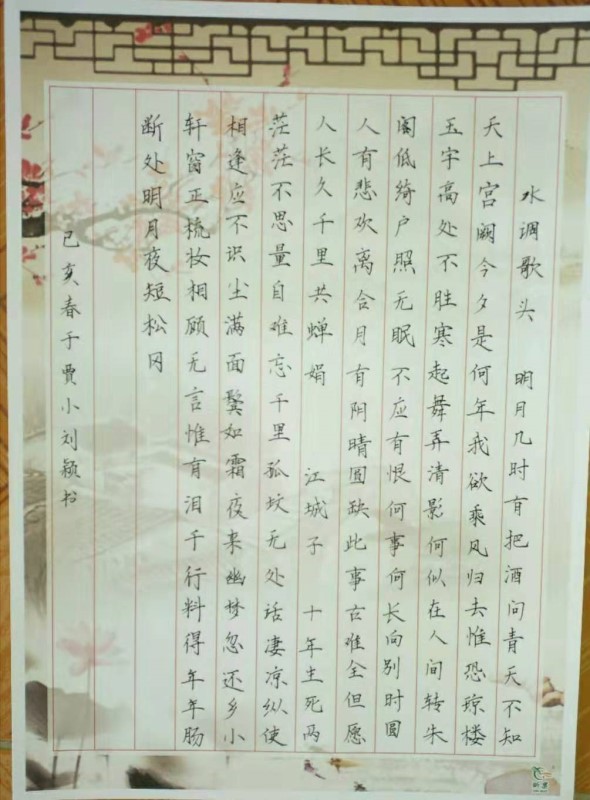 水调歌头 明月几时有把酒问青天不知
天上宫阙今夕是何年我欲乘风归去惟恐琼楼
玉宇高处不胜寒起舞弄清影何似在人间转朱
阁低绮户照无眠不应有恨何事何长向别时圆
人有悲欢离合月有阴晴圆缺此事古难全但愿
人长久千里共蝉娟 江城子 十年生死两
茫茫不思量自难忘千里孤坟无处话凄凉纵使
相逢应不识尘满面鬓如霜夜来幽梦忽还乡小
轩窗正梳妆相顾无言惟有泪千行料得年年肠
断处明月夜短松冈
己亥春于贾小刘颖书